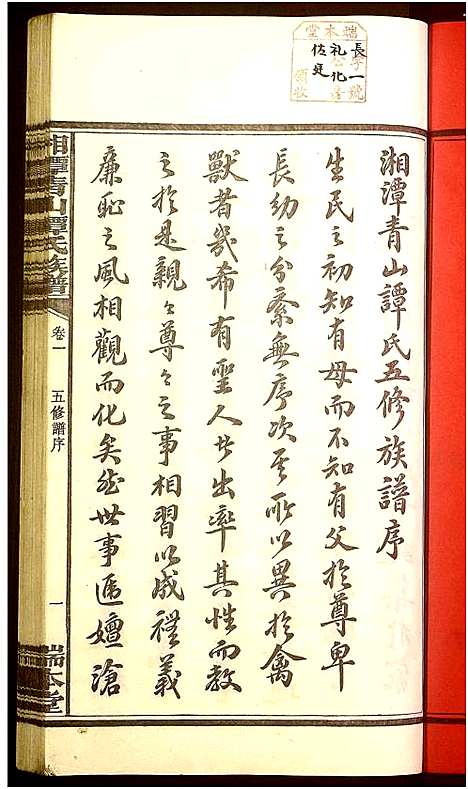 端本堂
長字一號
礼公化臺
佐廷
領收
湘潭青山譚氏五修族譜序
生民之初知有母而不知有父於尊卑
長幼之分紊無序次其所以異於禽
獸者幾希有聖人者出率其性而教
之於是親〻尊〻之事相習以成禮義
廉恥之風相觀而化矣然世事遞嬗滄
湘潭青山譚氏族譜
卷一
五修譜序
一
端本堂